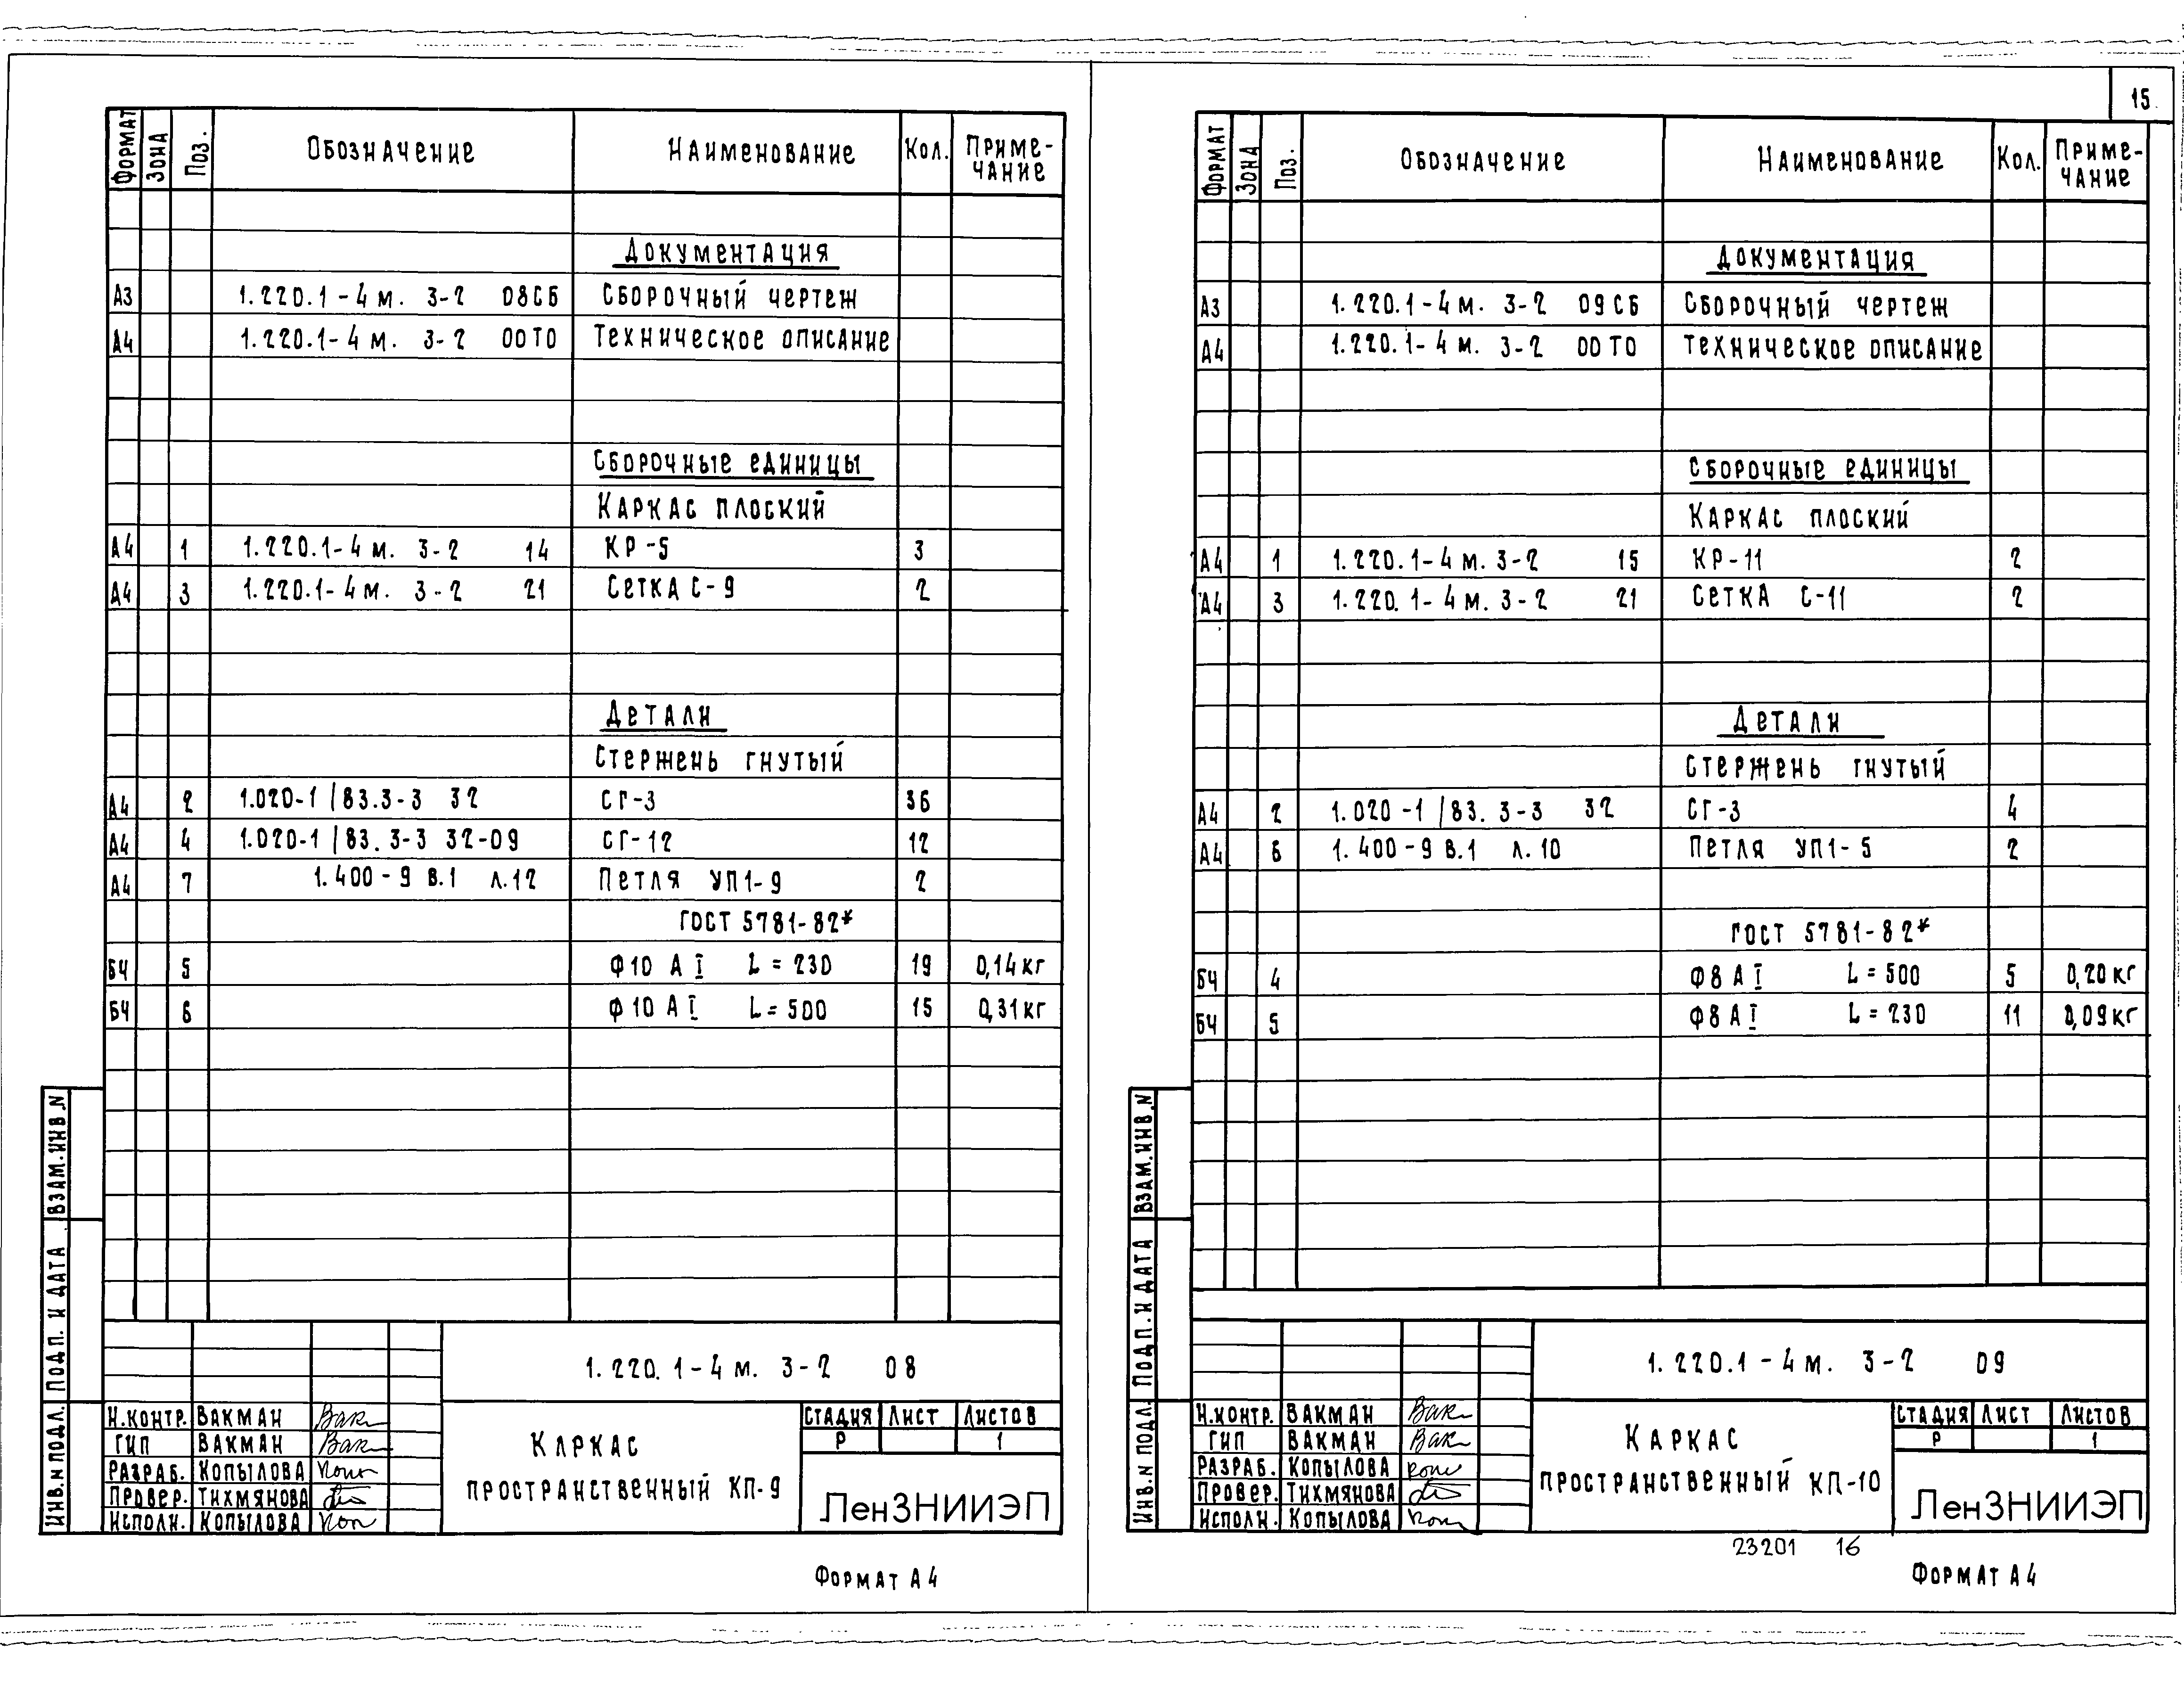 15
ФОРМАТ ЗОНА Поз. Обозначение Наименование Кол. Примечание
Документация
А3 1.220.1-4м. 3-2 08СБ Сборочный чертеж
А4 1.220.1-4м. 3-2 00ТО Техническое описание
Сборочные единицы
Каркас плоский
А4 1 1.220.1-4м. 3-2 14 КР-5 3
А4 3 1.220.1-4м. 3-2 21 Сетка С-9 2
Детали
Стержень гнутый
А4 2 1.020-1/83.3-3 32 СГ-3 36
А4 4 1.020-1/83.3-3 32-09 СГ-12 12
А4 7 1.400-9 В.1 л.12 Петля УП1-9 2
ГОСТ 5781-82*
БЧ 5 Ф10 АI L=230 19 0,14кг
БЧ 6 Ф10 АI L=500 15 0,31кг
1.220.1-4м. 3-2 08
Н.контр. Вакман
ГИП Вакман
Разраб. Копылова
Провер. Тихмянова
Исполн. Копылова
Каркас
пространственный КП-9
Стадия Лист Листов
Р 1
ЛенЗНИИЭП
Инв.N подл. Подп. и дата Взам.инв.N
Формат А4
ФОРМАТ ЗОНА Поз. Обозначение Наименование Кол. Примечание
Документация
А3 1.220.1-4м. 3-2 09СБ Сборочный чертеж
А4 1.220.1-4м. 3-2 00ТО Техническое описание
Сборочные единицы
Каркас плоский
А4 1 1.220.1-4м. 3-2 15 КР-11 2
А4 3 1.220.1-4м. 3-2 21 Сетка С-11 2
Детали
Стержень гнутый
А4 2 1.020-1/83.3-3 32 СГ-3 4
А4 6 1.400-9 В.1 л.10 Петля УП1-5 2
ГОСТ 5781-82*
БЧ 4 Ф8 АI L=500 5 0,20кг
БЧ 5 Ф8 АI L=230 11 0,09кг
1.220.1-4м. 3-2 09
Н.контр. Вакман
ГИП Вакман
Разраб. Копылова
Провер. Тихмянова
Исполн. Копылова
Каркас
пространственный КП-10
Стадия Лист Листов
Р 1
ЛенЗНИИЭП
Инв.N подл. Подп. и дата Взам.инв.N
23201 16
Формат А4